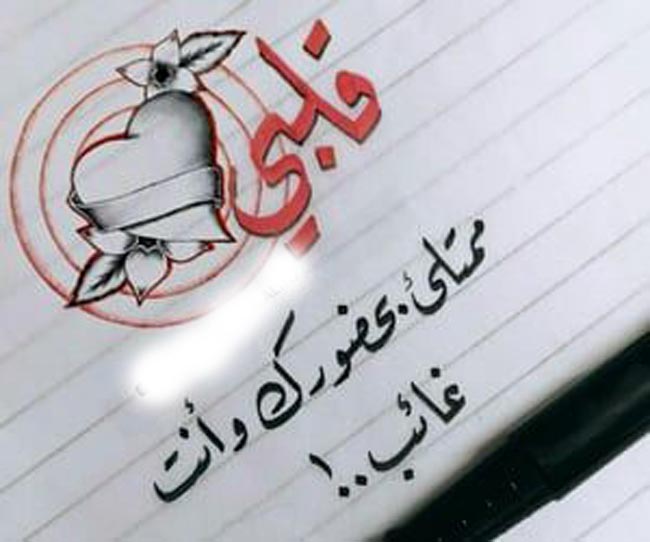 قلبي
ممتلئ بحضورك وأنت
غائب..!